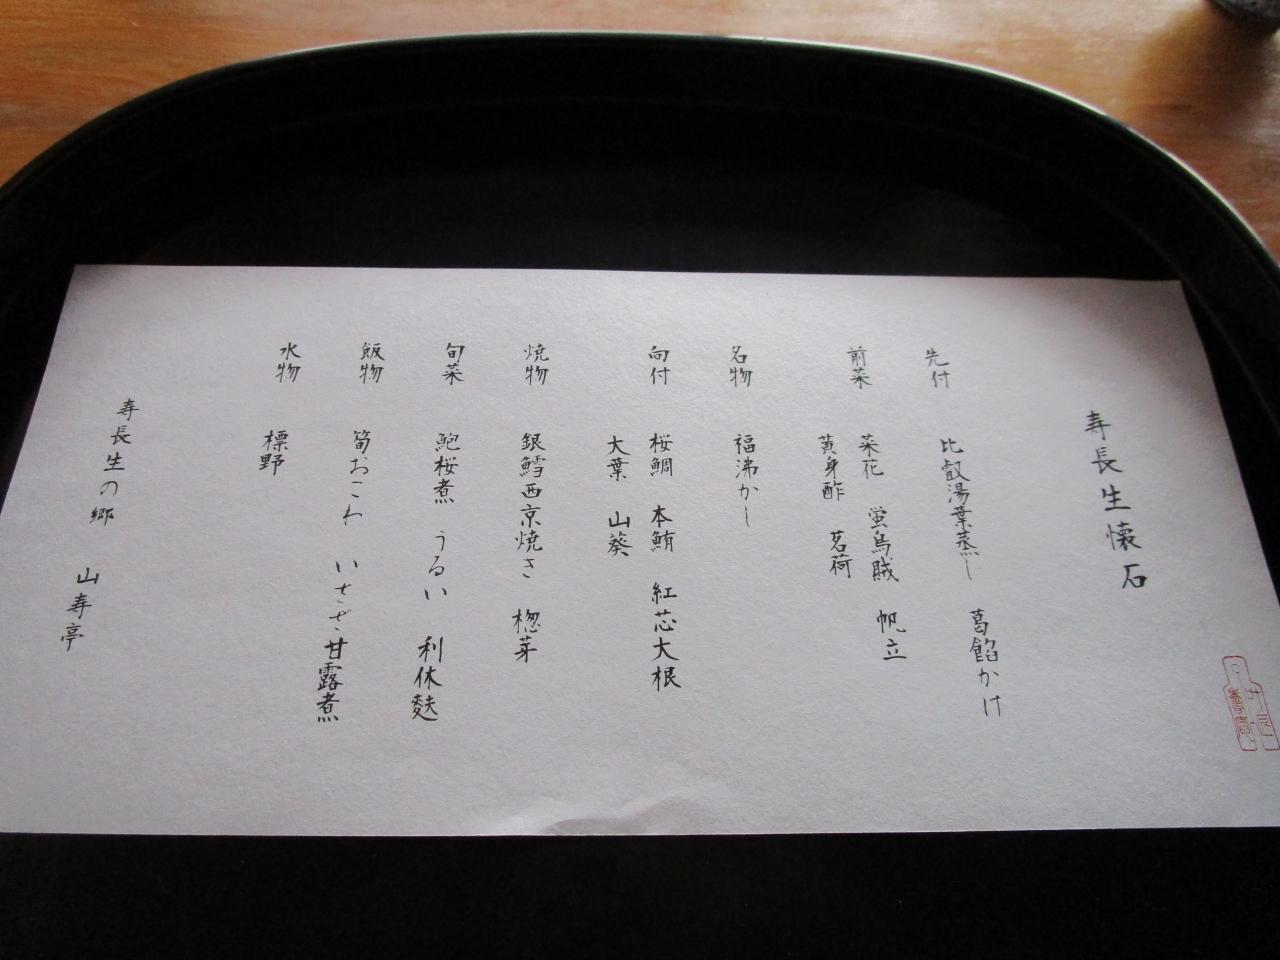 寿長生懐石
先付 比叡湯葉蒸し 葛餡かけ
前菜 菜花 蛍烏賊 帆立
黄身酢 茗荷
名物 福沸かし
向付 桜鯛 本鮪 紅芯大根
大葉 山葵
焼物 銀鱈西京焼き 楤芽
旬菜 鮑桜煮 うるい 利休麩
飯物 筍おこわ いさざ甘露煮
水物 標野
寿長生の郷 山寿亭